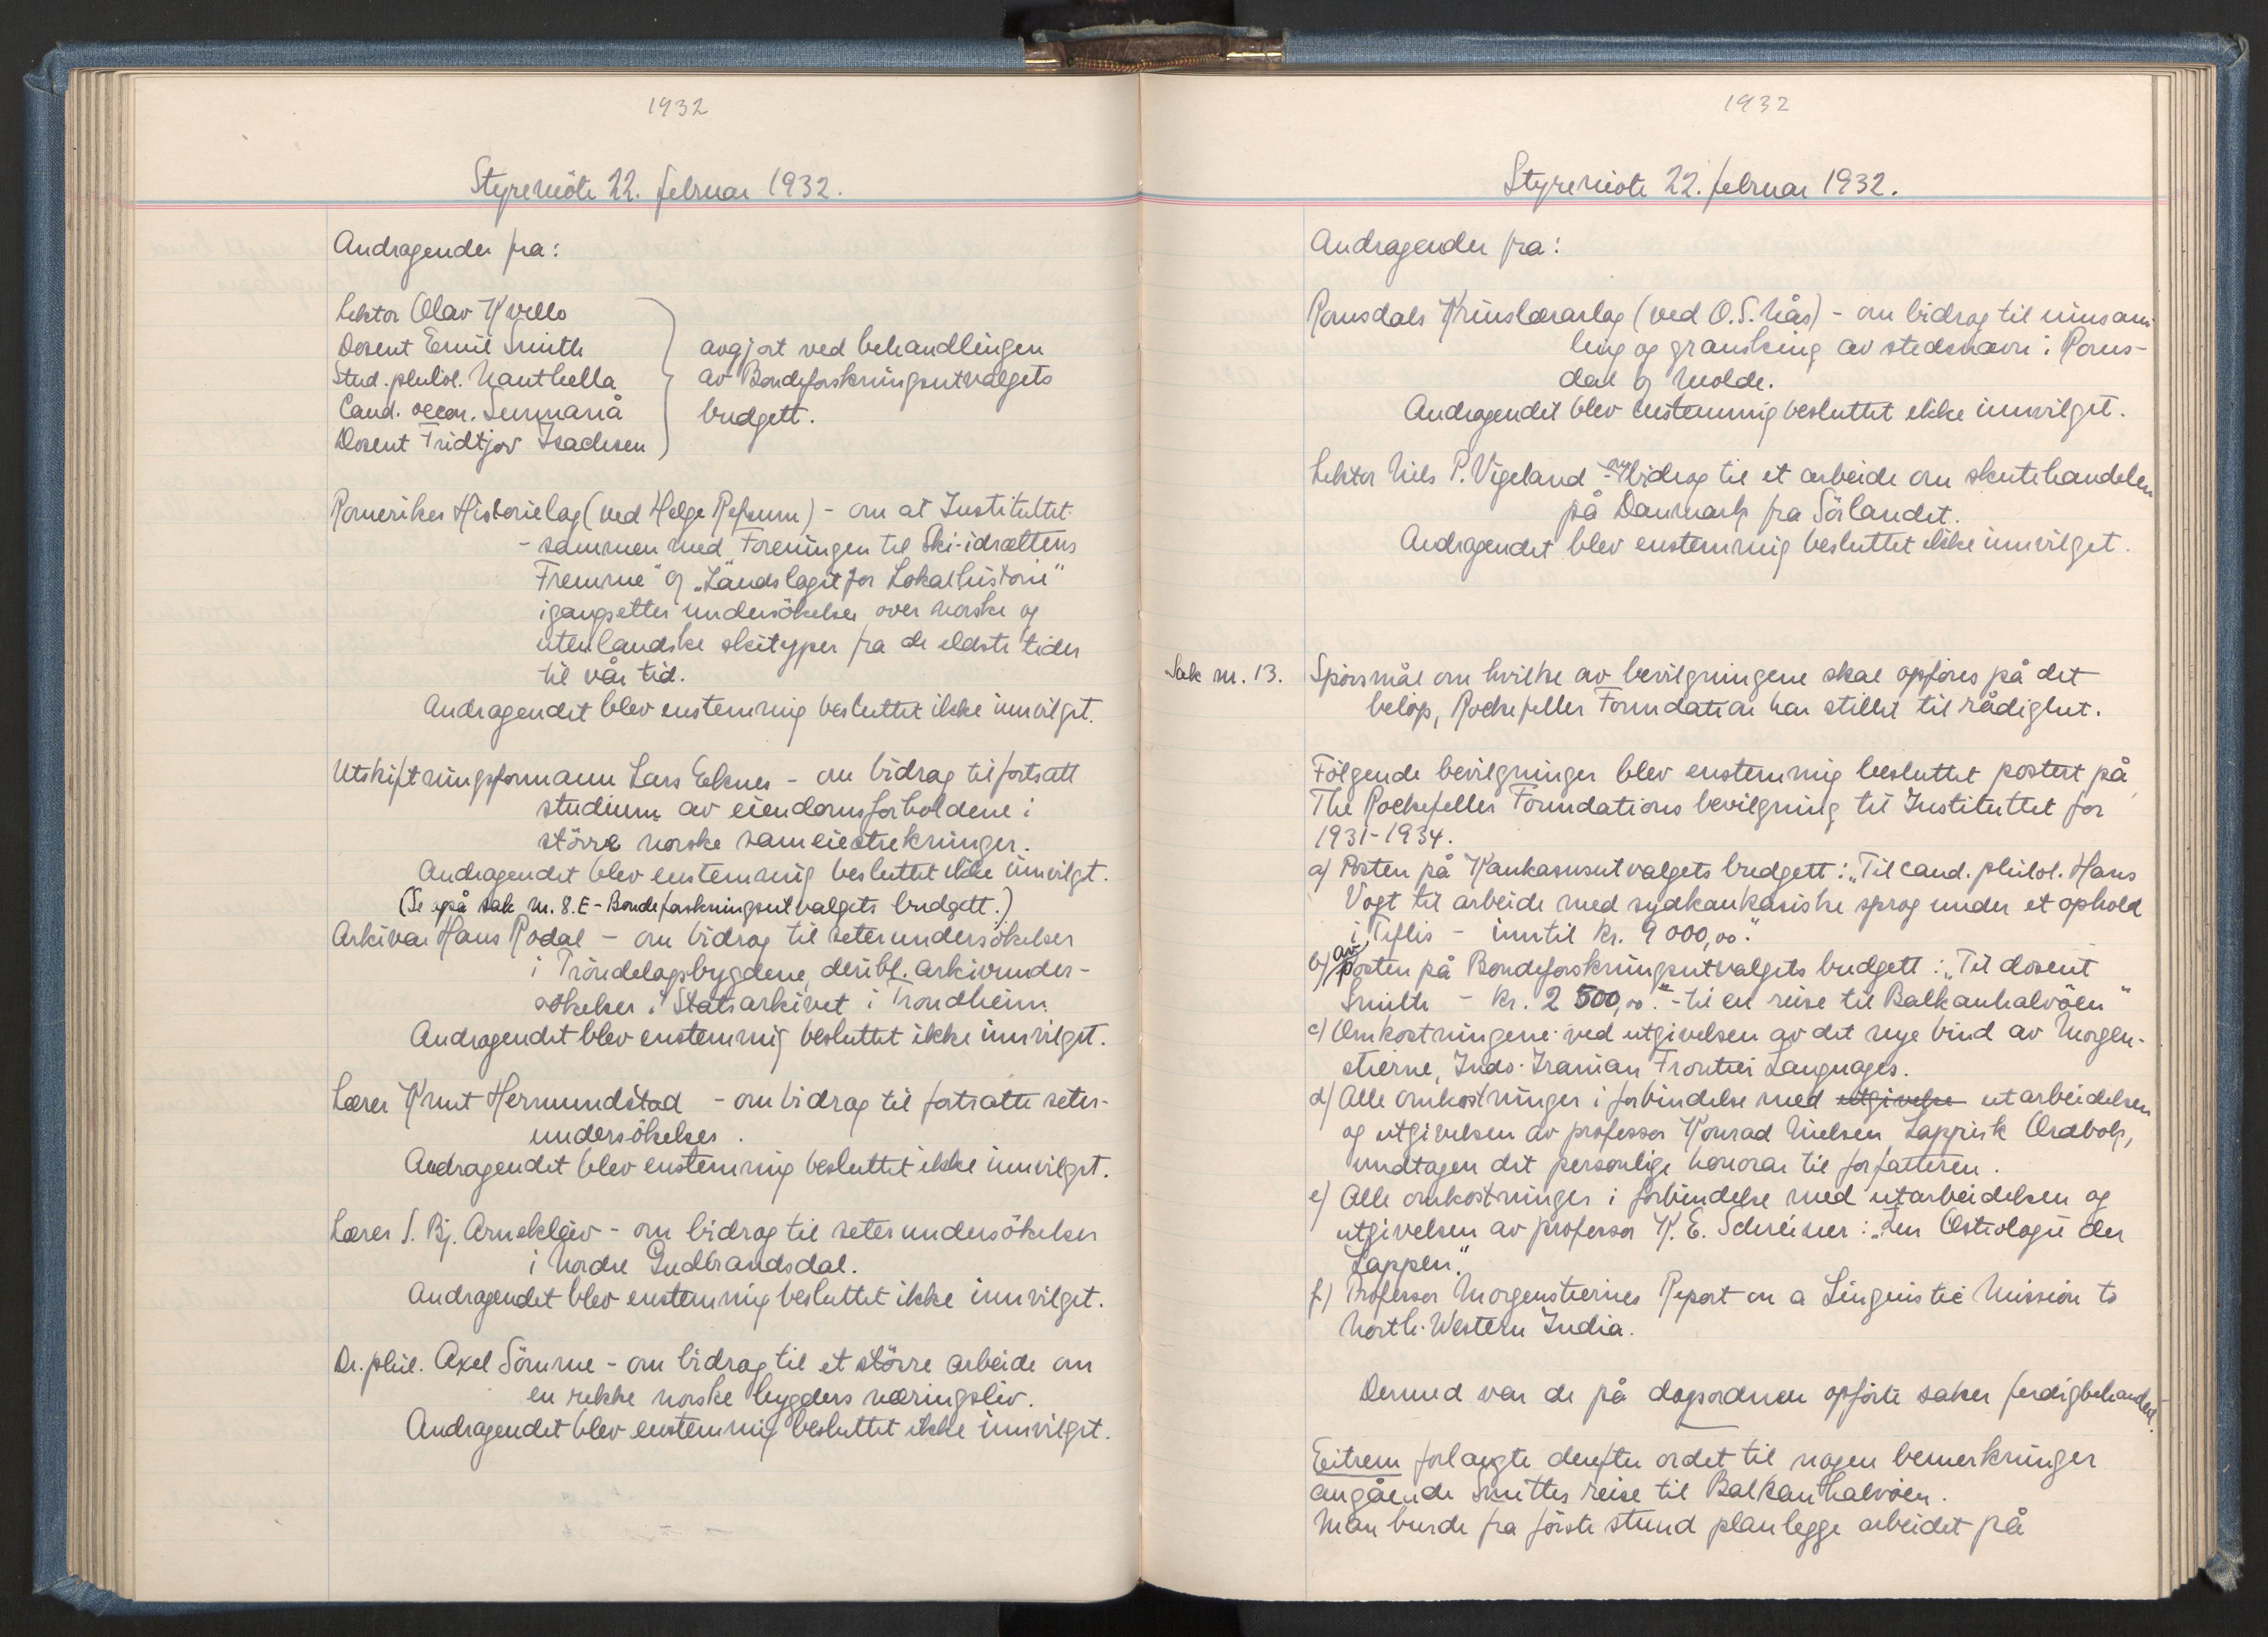 1932
Styremöte 22. februar 1932.
Andragender fra:
Lektor Olav Kvello
Dosent Emil Smith
Stud. philol. Nauthella
Cand. oecon. Sunnanå
Dosent Fridtjov Isachsen
avgjort ved behandlingen
av Bondeforskningsutvalgets
budgett.
Romerikes Historielag (ved Helge Refsum) - om at Instituttet
- sammen med "Foreningen til Ski-idrættens
Fremme" og "Landslaget for Lokalhistorie"
igangsetter undersökelser over norske og
utenlandske skityper fra de eldste tider
til vår tid.
Andragendet blev enstemmig besluttet ikke innvilget.
Utskiftningsformann Lars Eknes - om bidrag til fortsatt
studium av eiendomsforholdene i
större norske sameiestrekninger.
Andragendet blev enstemmig besluttet ikke innvilget.
(Se også sak nr. 8.E - Bondeforskningsutvalgets budgett.)
Arkivar Hans Rodal - om bidrag til seterundersökelser
i Tröndelagsbygdene, deribl. arkivunder-
sökelser i Statsarkivet i Trondheim.
Andragendet blev enstemmig besluttet ikke innvilget.
Lærer Knut Hermundstad - om bidrag til fortsatte seter-
undersökelser.
Andragendet blev enstemmig besluttet ikke innvilget.
Lærer S. Bj. Arnekleiv - om bidrag til seterundersökelser
i Nordre Gudbrandsdal.
Andragendet blev enstemmig besluttet ikke innvilget.
Dr. phil. Axel Sömme - om bidrag til et större arbeide om
en rekke norske bygders næringsliv.
Andragendet blev enstemmig besluttet ikke innvilget.
1932
Styremöte 22. februar 1932.
Andragender fra:
Romsdals Krinslærarlag (ved O. S. Nås) - om bidrag til innsam-
ling og gransking av stedsnavn i Roms-
dal og Molde.
Andragendet blev enstemmig besluttet ikke innvilget.
Lektor Nils P. Vigeland - om bidrag til et arbeide om skutehandelen
på Danmark fra Sörlandet.
Andragendet blev enstemmig besluttet ikke innvilget.
Sak nr. 13. Spörsmål om hvilke av bevilgningene skal opföres på det
belöp, Rockefeller Foundation har stillet til rådighet.
Fölgende bevilgninger blev enstemmig besluttet postert på
The Rockefeller Foundations bevilgning til Instituttet for
1931-1934.
a) Posten på Kaukasusutvalgets budgett: "Til cand. philol. Hans
Vogt til arbeide med sydkaukasiske sprog under et ophold
i Tiflis - inntil kr. 9 000,00."
b) av posten på Bondeforskningsutvalgets budgett: "Til dosent
Smith - kr. 2 500,00" - til en reise til Balkanhalvöen"
c) Omkostningene ved utgivelsen av det nye bind av Morgen-
stierne, Indo-Iranian Frontier Languages.
d) Alle omkostninger i forbindelse med utgivelse utarbeidelsen
og utgivelsen av professor Konrad Nielsen, Lappisk Ordbok,
undtagen det personlige honorar til forfatteren.
e) Alle omkostninger i forbindelse med utarbeidelsen og
utgivelsen av professor K. E. Schreiner: "Zur Osteologie der
Lappen".
f) Professor Morgenstiernes Report on a Linguistic Mission to
North-Western India.
Dermed var de på dagsordnen opförte saker ferdigbehandlet.
Eitrem forlangte derefter ordet til nogen bemerkninger
angående Smiths reise til Balkanhalvöen.
Man burde fra förste stund planlegge arbeidet på